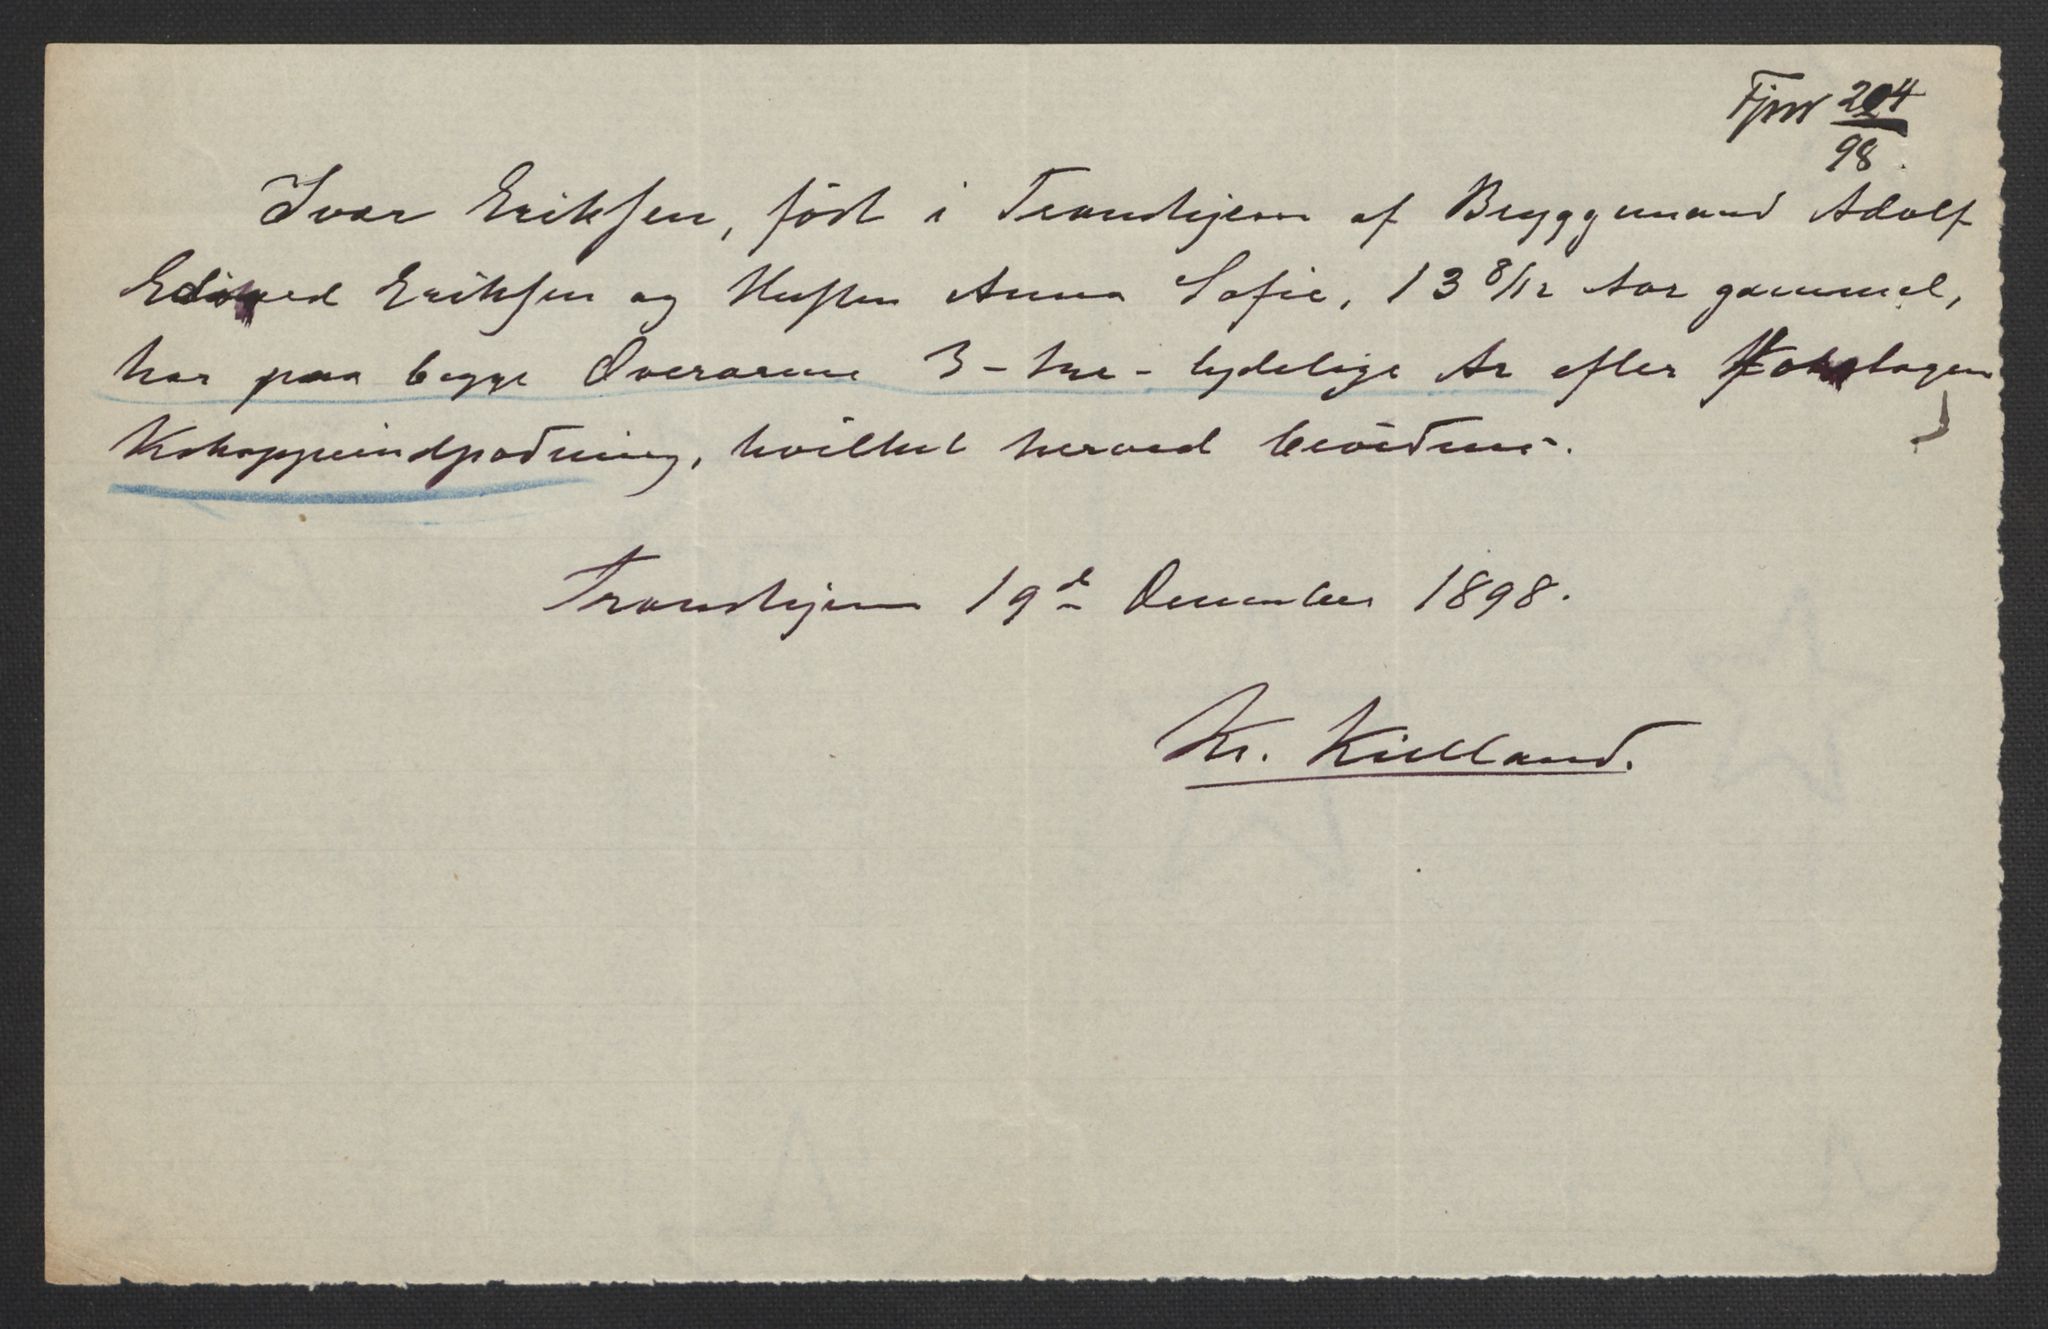 Fjnr 204
98.
Ivar Eriksen, födt i Trondhjem af Bryggemand Adolf
Edvard Eriksen og Hustru Anna Sofie, 13 8/12 Aar gammel,
har paa begge Overarme 3 - tre - tydelige Ar efter foretagen
Kokoppeindpodning, hvilket herved bevidnes.
Trondhjem 19d December 1898.
Kr. Kielland.